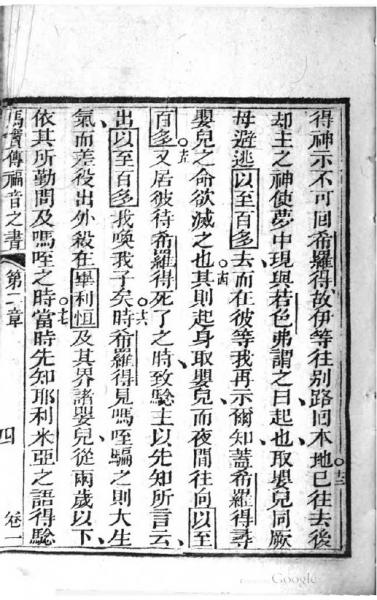 得神示不可回希羅得故伊等往別路回本地已往去後
却主之神使夢中現與若色弗謂之曰起也取嬰兒同厥
母避逃以至百多去而在彼等我再示爾知蓋希羅得尋
嬰兒之命欲滅之也其則起身取嬰兒而夜間往向以至
百多又居彼待希羅得死了之時致騐主以先知所言云
出以至百多我喚我子矣時希羅得見嗎咥騙之則大生
氣而差役出外殺在畢利恒及其界諸嬰兒從兩歲以下
依其所勤問及嗎咥之時當時先知耶利米亞之語得騐
傳福音之書 第二章 四 卷一
十三
十四
十五
十六
十七
Google